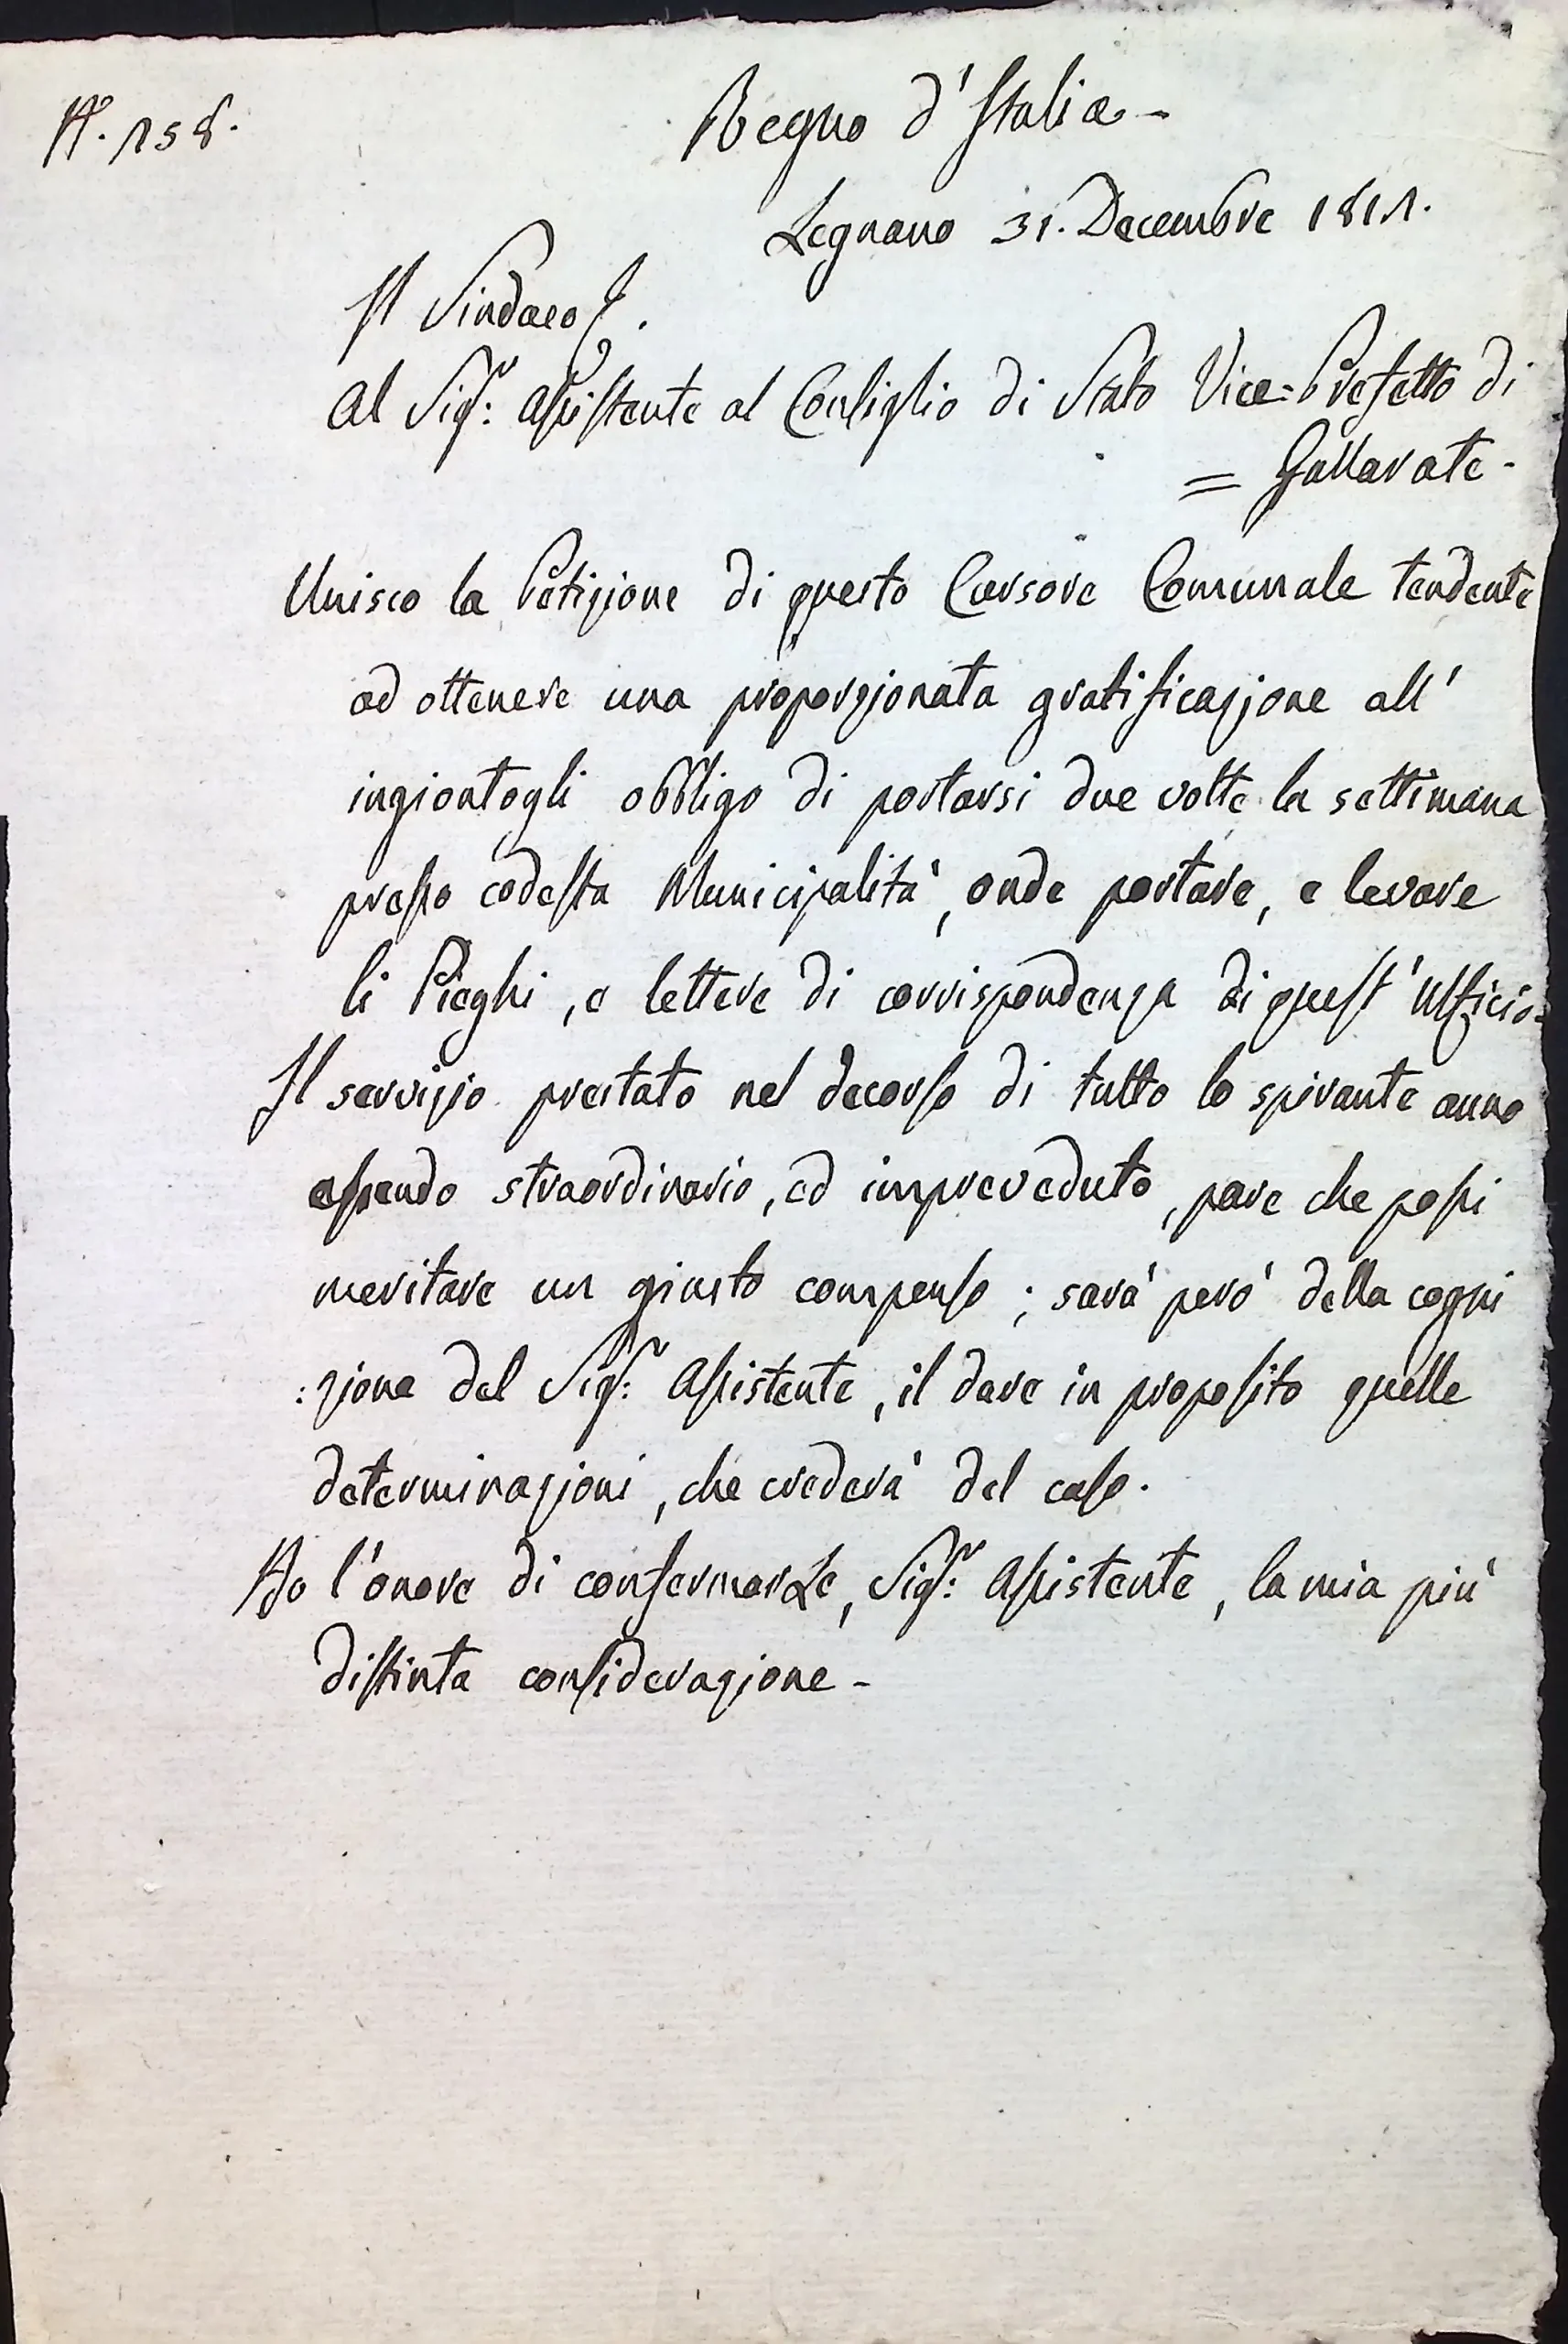 N.° 158.
Regno d'Italia -
Legnano 31. Decembre 1811.
Il Sindaco
Al Sigr: Assistente al Consiglio di Stato Vice=Prefetto di
= Gallarate -
Unisco la Petizione di questo Cursore Comunale tendente
ad ottenere una proporzionata gratificazione all'
ingiontogli obbligo di portarsi due volte la settimana
presso codesta Municipalità, onde portare, e levare
li Pieghi, e lettere di corrispondenza di quest'Ufficio-
Il servizio prestato nel decorso di tutto lo spirante anno
essendo straordinario, ed impreveduto, pare che possi
meritare un giusto compenso; sarà però della cogni
:zione del Sigr: Assistente, il dare in proposito quelle
determinazioni, che crederà del caso.
Ho l'onore di confermarLe, Sigr: Assistente, la mia più
distinta considerazione -